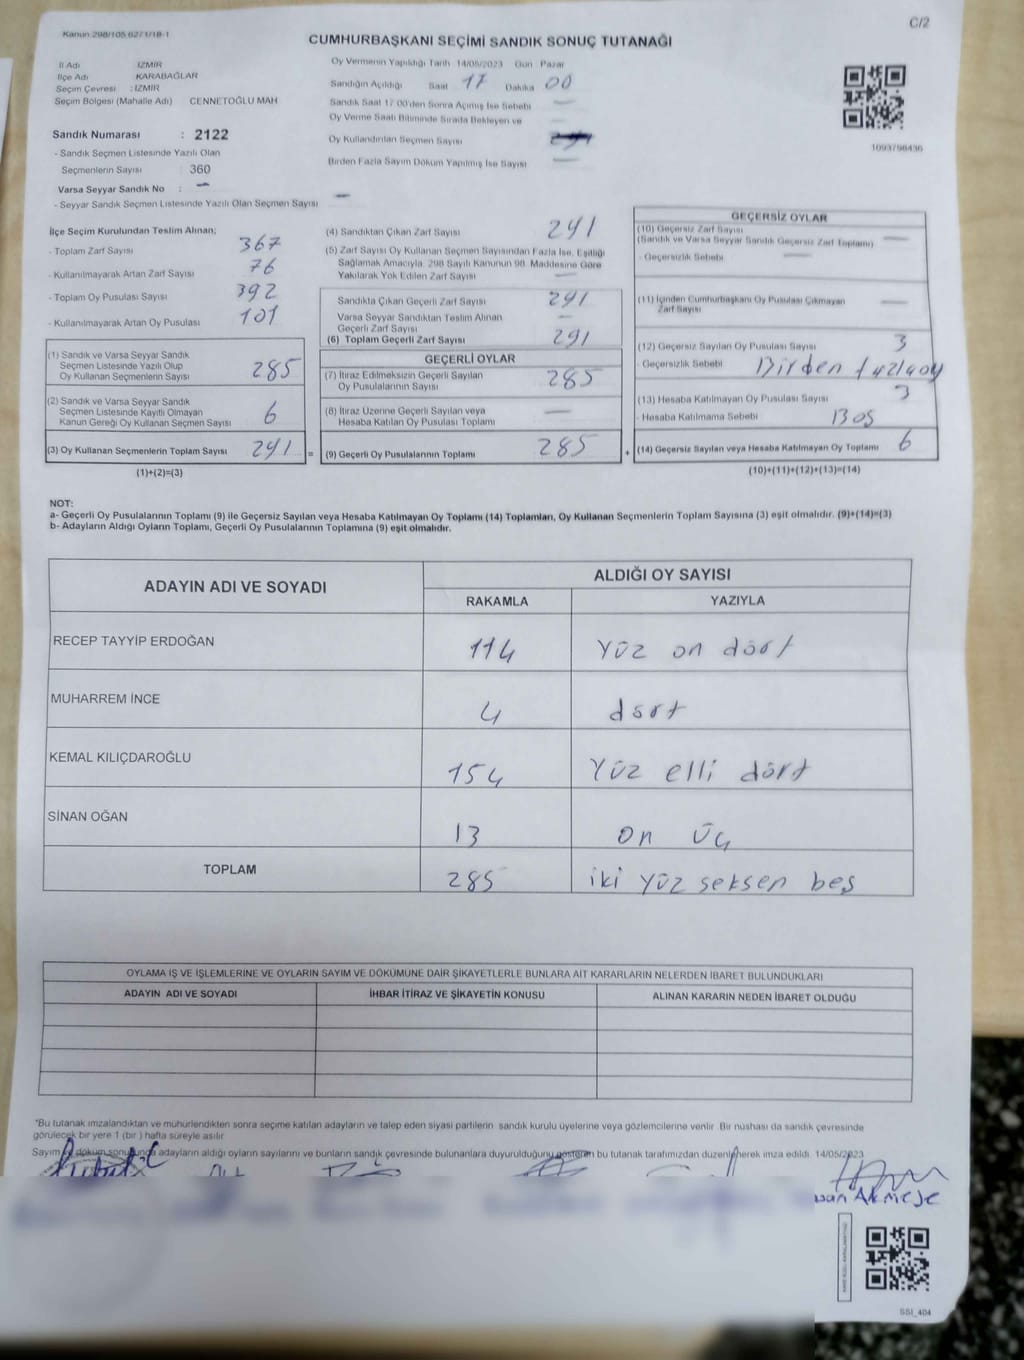 Kanun 298/105.627/1/18-1
C/2
CUMHURBAŞKANI SEÇİMİ SANDIK SONUÇ TUTANAĞI
İl Adı İZMİR
İlçe Adı KARABAĞLAR
Seçim Çevresi : İZMİR
Seçim Bölgesi (Mahalle Adı) CENNETOĞLU MAH
Sandık Numarası : 2122
- Sandık Seçmen Listesinde Yazılı Olan
Seçmenlerin Sayısı : 360
Varsa Seyyar Sandık No : -
- Seyyar Sandık Seçmen Listesinde Yazılı Olan Seçmen Sayısı -
Oy Vermenin Yapıldığı Tarih 14/05/2023 Gün Pazar
Sandığın Açıldığı Saat 17 Dakika 00
Sandık Saat 17.00'den Sonra Açılmış İse Sebebi -
Oy Verme Saati Bitiminde Sırada Bekleyen ve
Oy Kullandırılan Seçmen Sayısı
Birden Fazla Sayım Döküm Yapılmış İse Sayısı -
1093798436
İlçe Seçim Kurulundan Teslim Alınan;
- Toplam Zarf Sayısı 367
- Kullanılmayarak Artan Zarf Sayısı 76
- Toplam Oy Pusulası Sayısı 392
- Kullanılmayarak Artan Oy Pusulası 101
(1) Sandık ve Varsa Seyyar Sandık
Seçmen Listesinde Yazılı Olup
Oy Kullanan Seçmenlerin Sayısı 285
(2) Sandık ve Varsa Seyyar Sandık
Seçmen Listesinde Kayıtlı Olmayan
Kanun Gereği Oy Kullanan Seçmen Sayısı 6
(3) Oy Kullanan Seçmenlerin Toplam Sayısı 291 =
(1)+(2)=(3)
(4) Sandıktan Çıkan Zarf Sayısı 291
(5) Zarf Sayısı Oy Kullanan Seçmen Sayısından Fazla İse, Eşitliği
Sağlamak Amacıyla, 298 Sayılı Kanunun 98. Maddesine Göre
Yakılarak Yok Edilen Zarf Sayısı -
Sandıkta Çıkan Geçerli Zarf Sayısı 291
Varsa Seyyar Sandıktan Teslim Alınan
Geçerli Zarf Sayısı -
(6) Toplam Geçerli Zarf Sayısı 291
GEÇERLİ OYLAR
(7) İtiraz Edilmeksizin Geçerli Sayılan
Oy Pusulalarının Sayısı 285
(8) İtiraz Üzerine Geçerli Sayılan veya
Hesaba Katılan Oy Pusulası Toplamı -
(9) Geçerli Oy Pusulalarının Toplamı 285 +
GEÇERSİZ OYLAR
(10) Geçersiz Zarf Sayısı
(Sandık ve Varsa Seyyar Sandık Geçersiz Zarf Toplamı) -
- Geçersizlik Sebebi -
(11) İçinden Cumhurbaşkanı Oy Pusulası Çıkmayan
Zarf Sayısı -
(12) Geçersiz Sayılan Oy Pusulası Sayısı 3
- Geçersizlik Sebebi Birden fazla oy
(13) Hesaba Katılmayan Oy Pusulası Sayısı 3
- Hesaba Katılmama Sebebi Boş
(14) Geçersiz Sayılan veya Hesaba Katılmayan Oy Toplamı 6
(10)+(11)+(12)+(13)=(14)
NOT:
a- Geçerli Oy Pusulalarının Toplamı (9) ile Geçersiz Sayılan veya Hesaba Katılmayan Oy Toplamı (14) Toplamları, Oy Kullanan Seçmenlerin Toplam Sayısına (3) eşit olmalıdır. (9)+(14)=(3)
b- Adayların Aldığı Oyların Toplamı, Geçerli Oy Pusulalarının Toplamına (9) eşit olmalıdır.
ADAYIN ADI VE SOYADI
ALDIĞI OY SAYISI
RAKAMLA YAZIYLA
RECEP TAYYİP ERDOĞAN 114 Yüz on dört
MUHARREM İNCE 4 dört
KEMAL KILIÇDAROĞLU 154 Yüz elli dört
SİNAN OĞAN 13 on üç
TOPLAM 285 iki yüz seksen beş
OYLAMA İŞ VE İŞLEMLERİNE VE OYLARIN SAYIM VE DÖKÜMÜNE DAİR ŞİKAYETLERLE BUNLARA AİT KARARLARIN NELERDEN İBARET BULUNDUKLARI
ADAYIN ADI VE SOYADI İHBAR İTİRAZ VE ŞİKAYETİN KONUSU ALINAN KARARIN NEDEN İBARET OLDUĞU
"Bu tutanak imzalandıktan ve mühürlendikten sonra seçime katılan adayların ve talep eden siyasi partilerin sandık kurulu üyelerine veya gözlemcilerine verilir. Bir nüshası da sandık çevresinde
görülecek bir yere 1 (bir) hafta süreyle asılır
Sayım ve döküm sonucunda adayların aldığı oyların sayılarını ve bunların sandık çevresinde bulunanlara duyurulduğunu gösteren bu tutanak tarafımızdan düzenlenerek imza edildi. 14/05/2023
Akmeşe
SSI_404